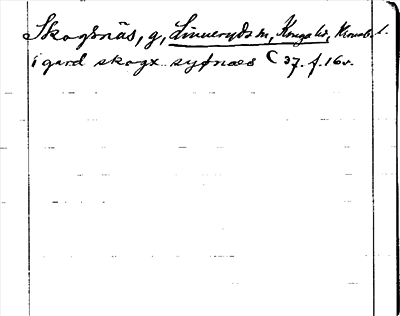 Skogsnäs, g, Linneryds sn, Konga hd, Kronob. l.
i gard skogx.. sydnæs C 37. f. 16v.